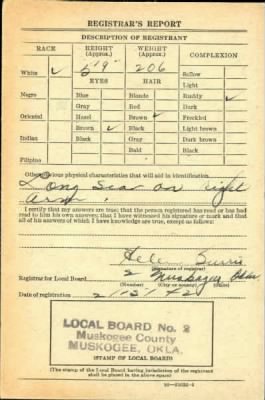 REGISTRAR'S REPORT
DESCRIPTION OF REGISTRANT
RACE
HEIGHT (Approx.)
WEIGHT (Approx.)
COMPLEXION
White ✓
5'9"
206
Sallow
EYES
HAIR
Light
Negro
Blue
Blonde
Ruddy ✓
Gray
Red
Dark
Oriental
Hazel
Brown ✓
Freckled
Brown ✓
Black
Light brown
Indian
Black
Gray
Dark brown
Bald
Black
Filipino
Other obvious physical characteristics that will aid in identification
Long scar on right
arm.
I certify that my answers are true; that the person registered has read or has had
read to him his own answers; that I have witnessed his signature or mark and that
all of his answers of which I have knowledge are true, except as follows:
Helen
(Signature of registrar)
Registrar for Local Board 2 Muskogee Okla
(Number) (City or county) (State)
Date of registration
LOCAL BOARD No. 2
Muskogee County
MUSKOGEE, OKLA.
(STAMP OF LOCAL BOARD)
(The stamp of the Local Board having jurisdiction of the registrant
shall be placed in the above space.)